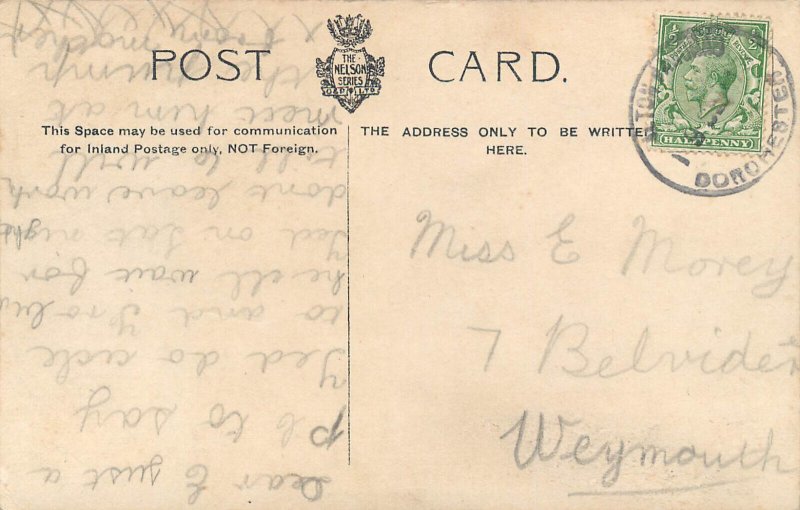 POST CARD.
THE
NELSON
SERIES
This Space may be used for communication
for Inland Postage only, NOT Foreign.
THE ADDRESS ONLY TO BE WRITTEN
HERE.
HALFPENNY
DORCHESTER
Miss E Morey
7 Belvider
Weymouth
Dear E just a
pc to say
Ted do cicle
to and fro
wait for
Ted on Sat night
dont leave work
tell will
meet him at
the pump
from mother